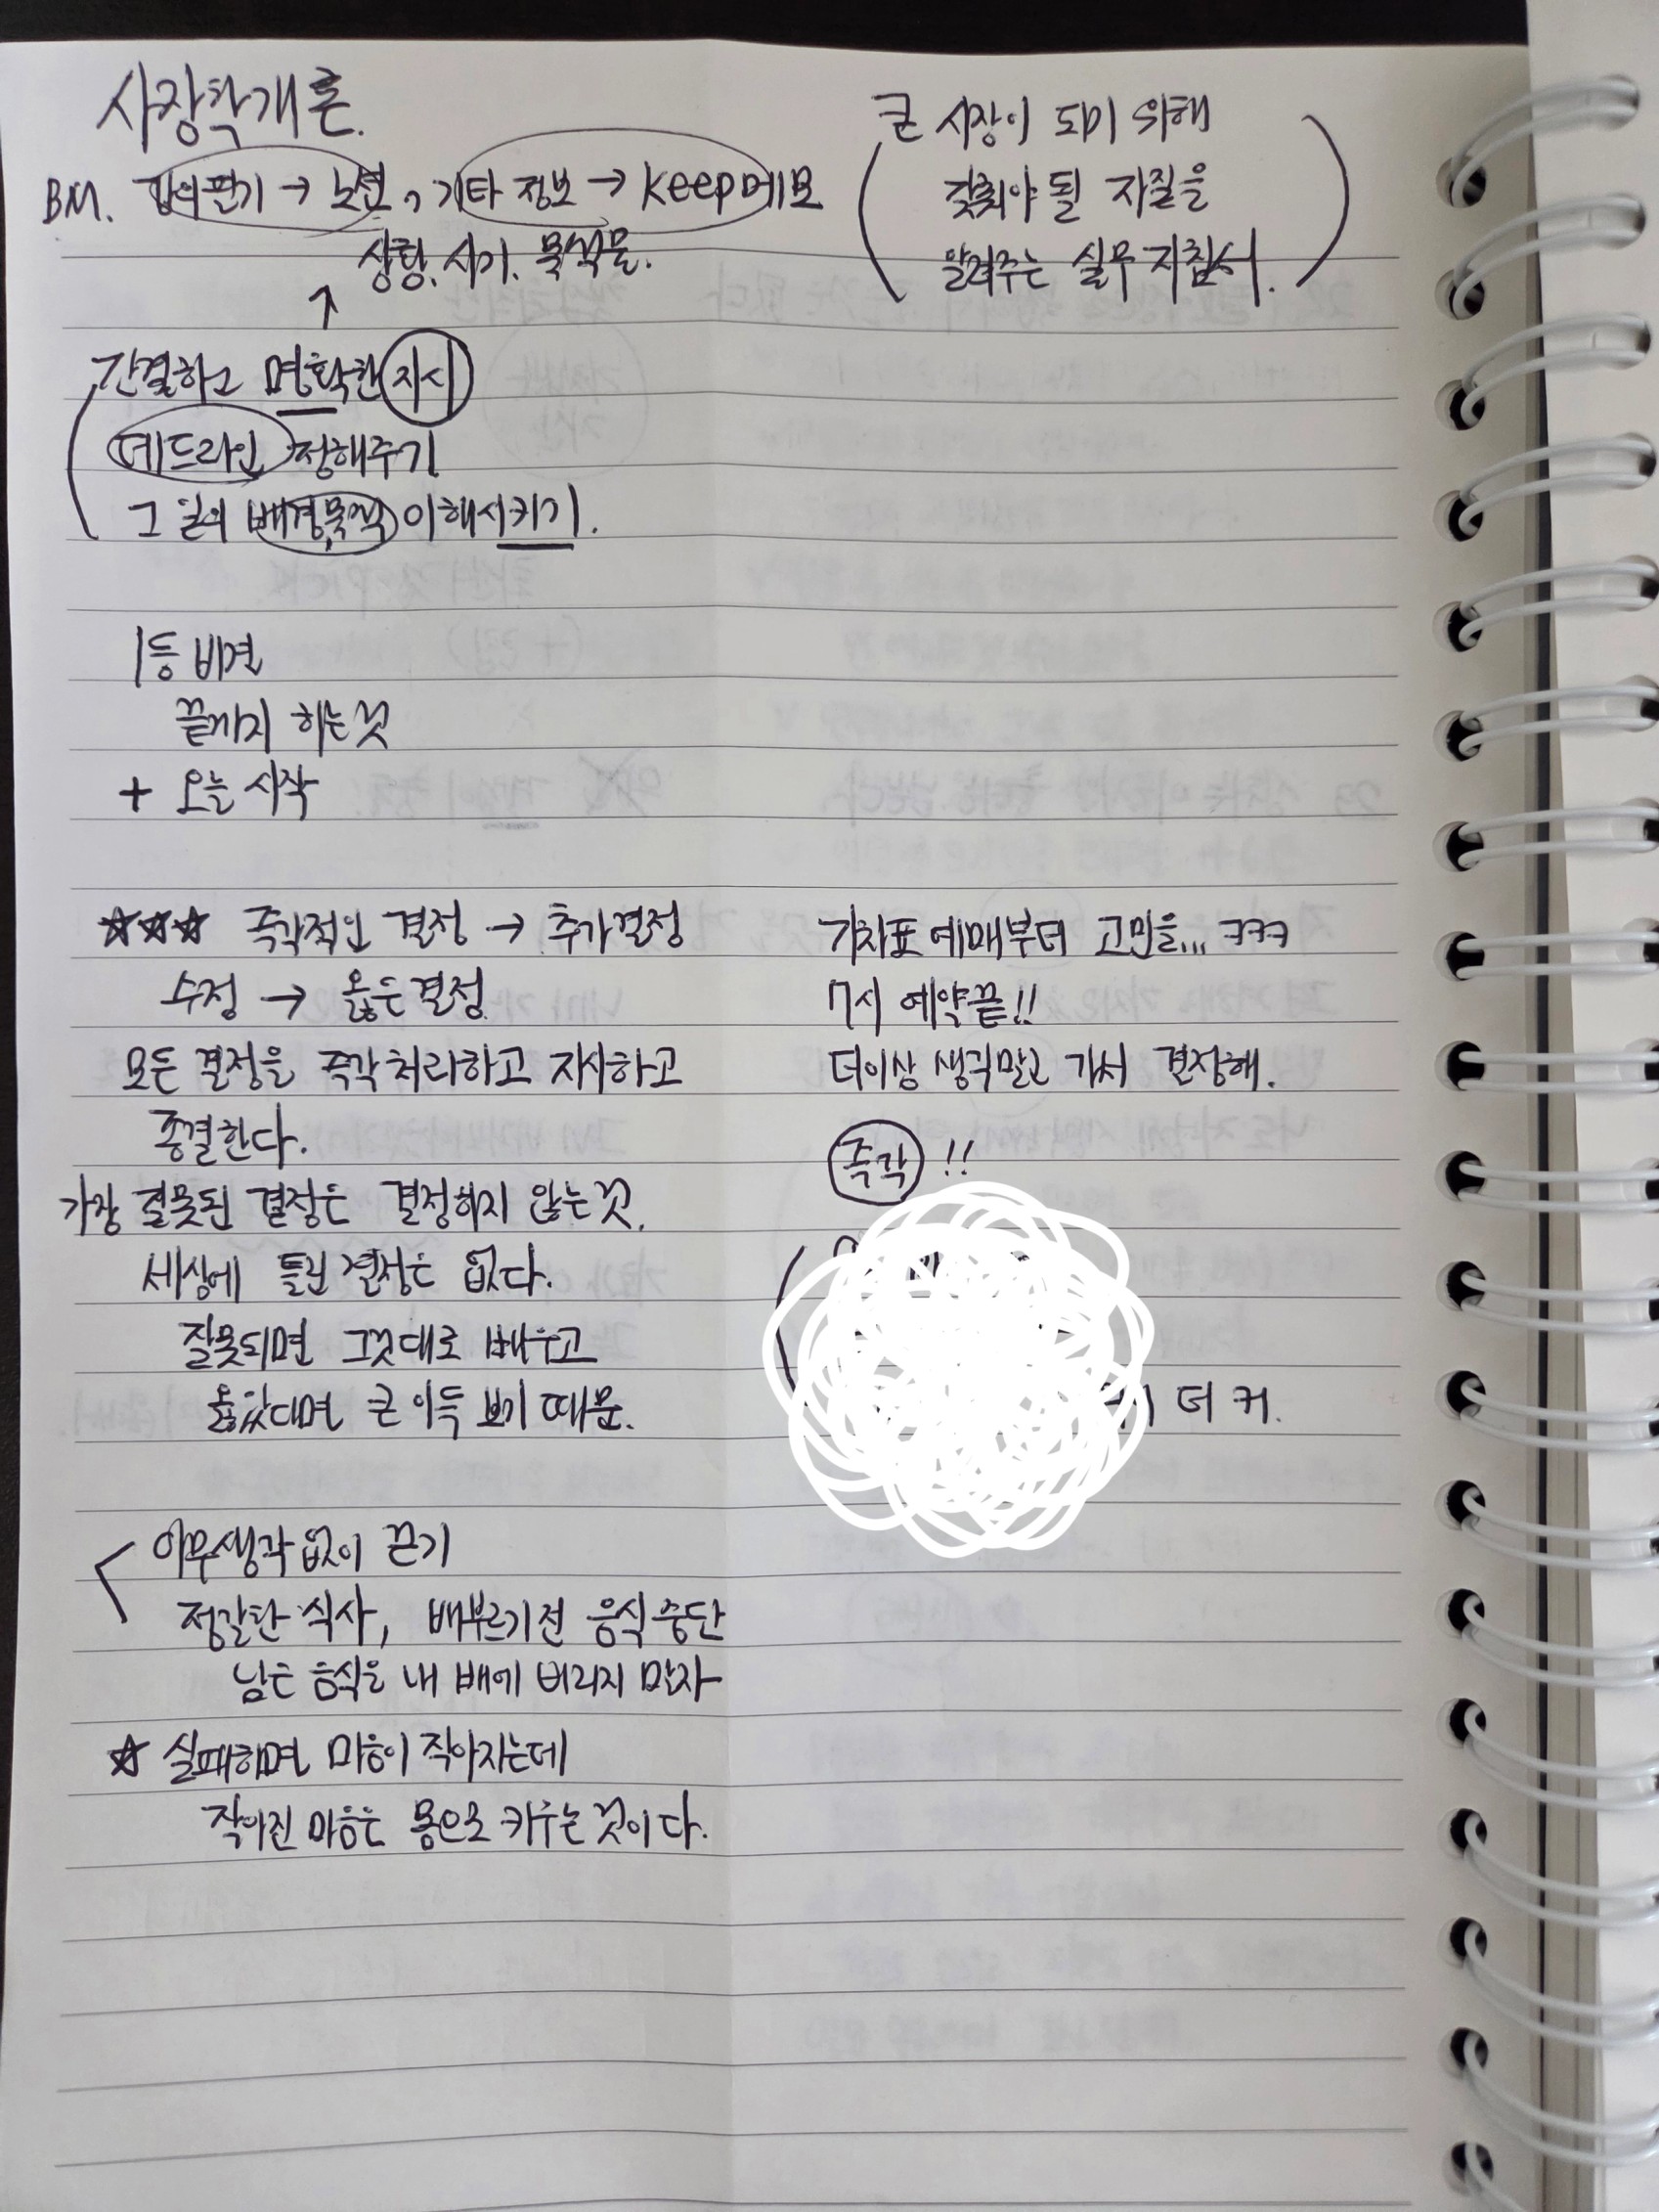 사장학개론.
BM. 합의판기 → 노션, 기타 정보 → keep메모
상황. 시기. 목적물.
↑
간결하고 명확한 지시
데드라인 정해주기
그 일의 배경,목적 이해시키기.
1등 비결
끝까지 하는것
+ 오늘 시작
☆☆☆ 즉각적인 결정 → 추가결정
수정 → 옳은결정.
모든 결정을 즉각처리하고 지시하고
종결한다.
가장 잘못된 결정은 결정하지 않는것.
세상에 틀린 결정은 없다.
잘못되면 그것대로 배우고
옳았다면 큰 이득 보기 때문.
아무생각없이 끈기
정갈한 식사, 배부르기전 음식중단
남은 음식을 내 배에 버리지 말자
☆ 실패하면 마음이 작아지는데
작아진 마음은 몸으로 키우는 것이다.
큰 사장이 되기 위해
갖춰야 될 자질을
알려주는 실무 지침서.
기차표 예매부터 고민을... ㅋㅋㅋ
7시 예약끝!!
더이상 생각말고 가서 결정해.
즉각 !!
더 커.